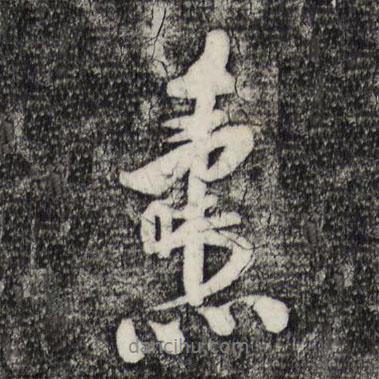 燾
dancihu.com